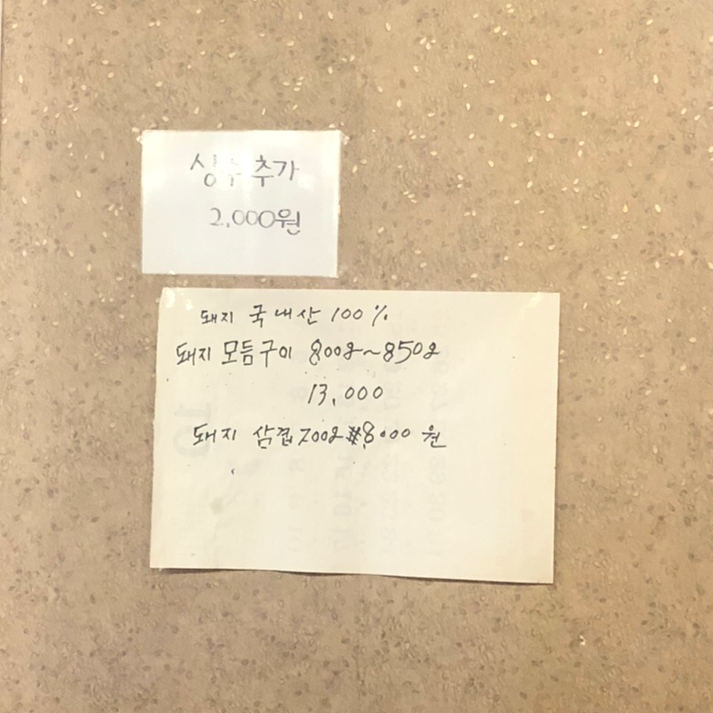 추가
2,000원
돼지 국내산 100%
돼지 모듬구이 800g~850g
13,000
돼지 삼겹 700g 8000 원